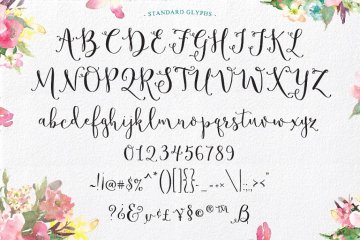 · STANDARD GLYPHS ·
ABCDEFGHIJKL
MNOPQRSTUVWXYZ
abcdefghijklmnopqrstuvwxyz
0123456789